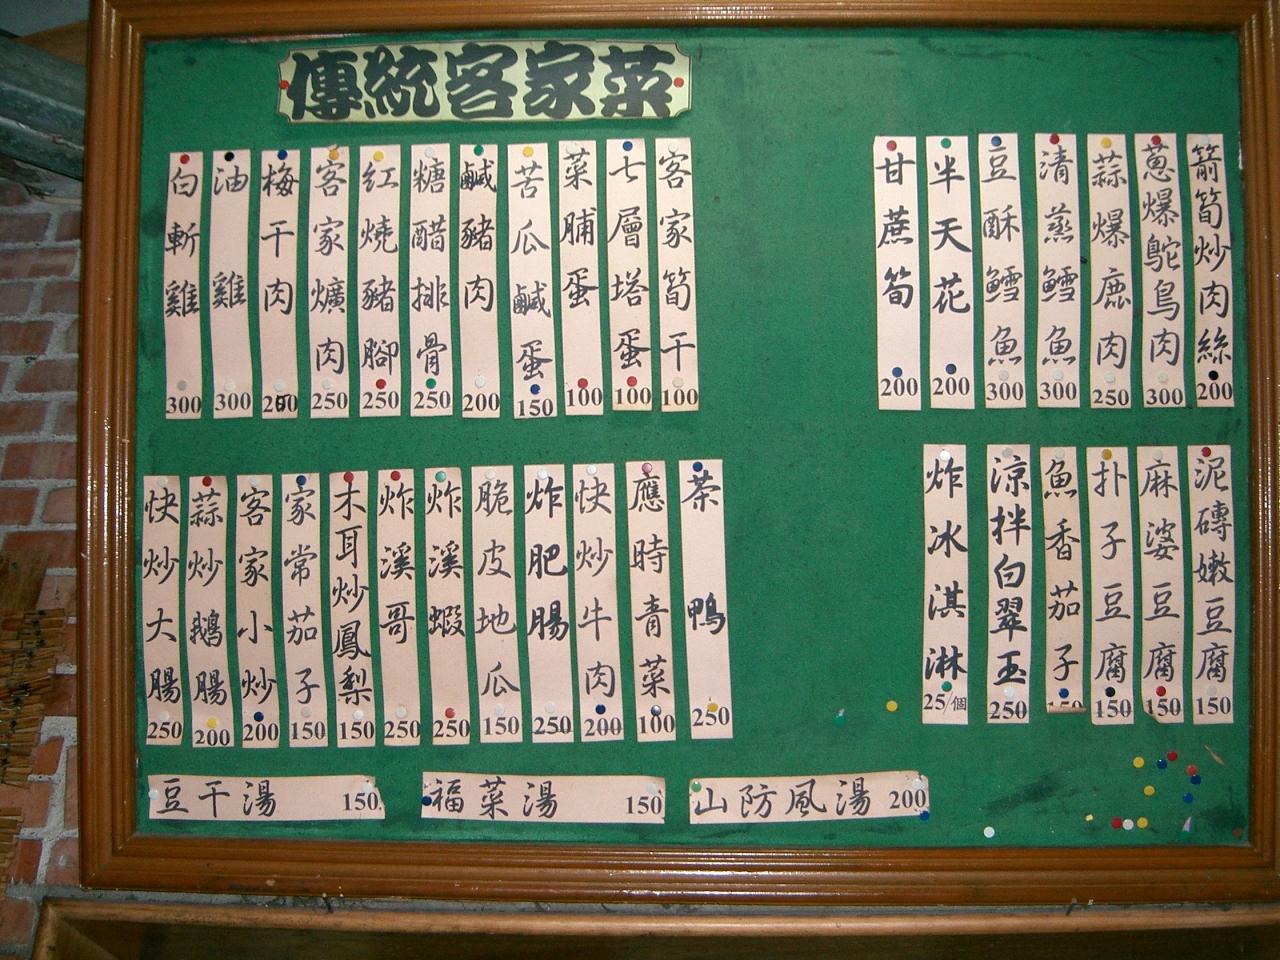 傳統客家菜
箭筍炒肉絲 200
蔥爆鴕鳥肉 300
蒜爆鹿肉 250
清蒸鱈魚 300
豆酥鱈魚 300
半天花 200
甘蔗筍 200
客家筍干 100
七層塔蛋 100
菜脯蛋 100
苦瓜鹹蛋 150
鹹豬肉 200
糖醋排骨 250
紅燒豬腳 250
客家爌肉 250
梅干肉 200
油雞 300
白斬雞 300
泥磚嫩豆腐 150
麻婆豆腐 150
扑子豆腐 150
魚香茄子 150
涼拌白翠玉 250
炸冰淇淋 25/個
茶鴨 250
應時青菜 100
快炒牛肉 200
炸肥腸 250
脆皮地瓜 150
炸溪蝦 250
炸溪哥 250
木耳炒鳳梨 150
家常茄子 150
客家小炒 200
蒜炒鵝腸 200
快炒大腸 250
豆干湯 150
福菜湯 150
山防風湯 200